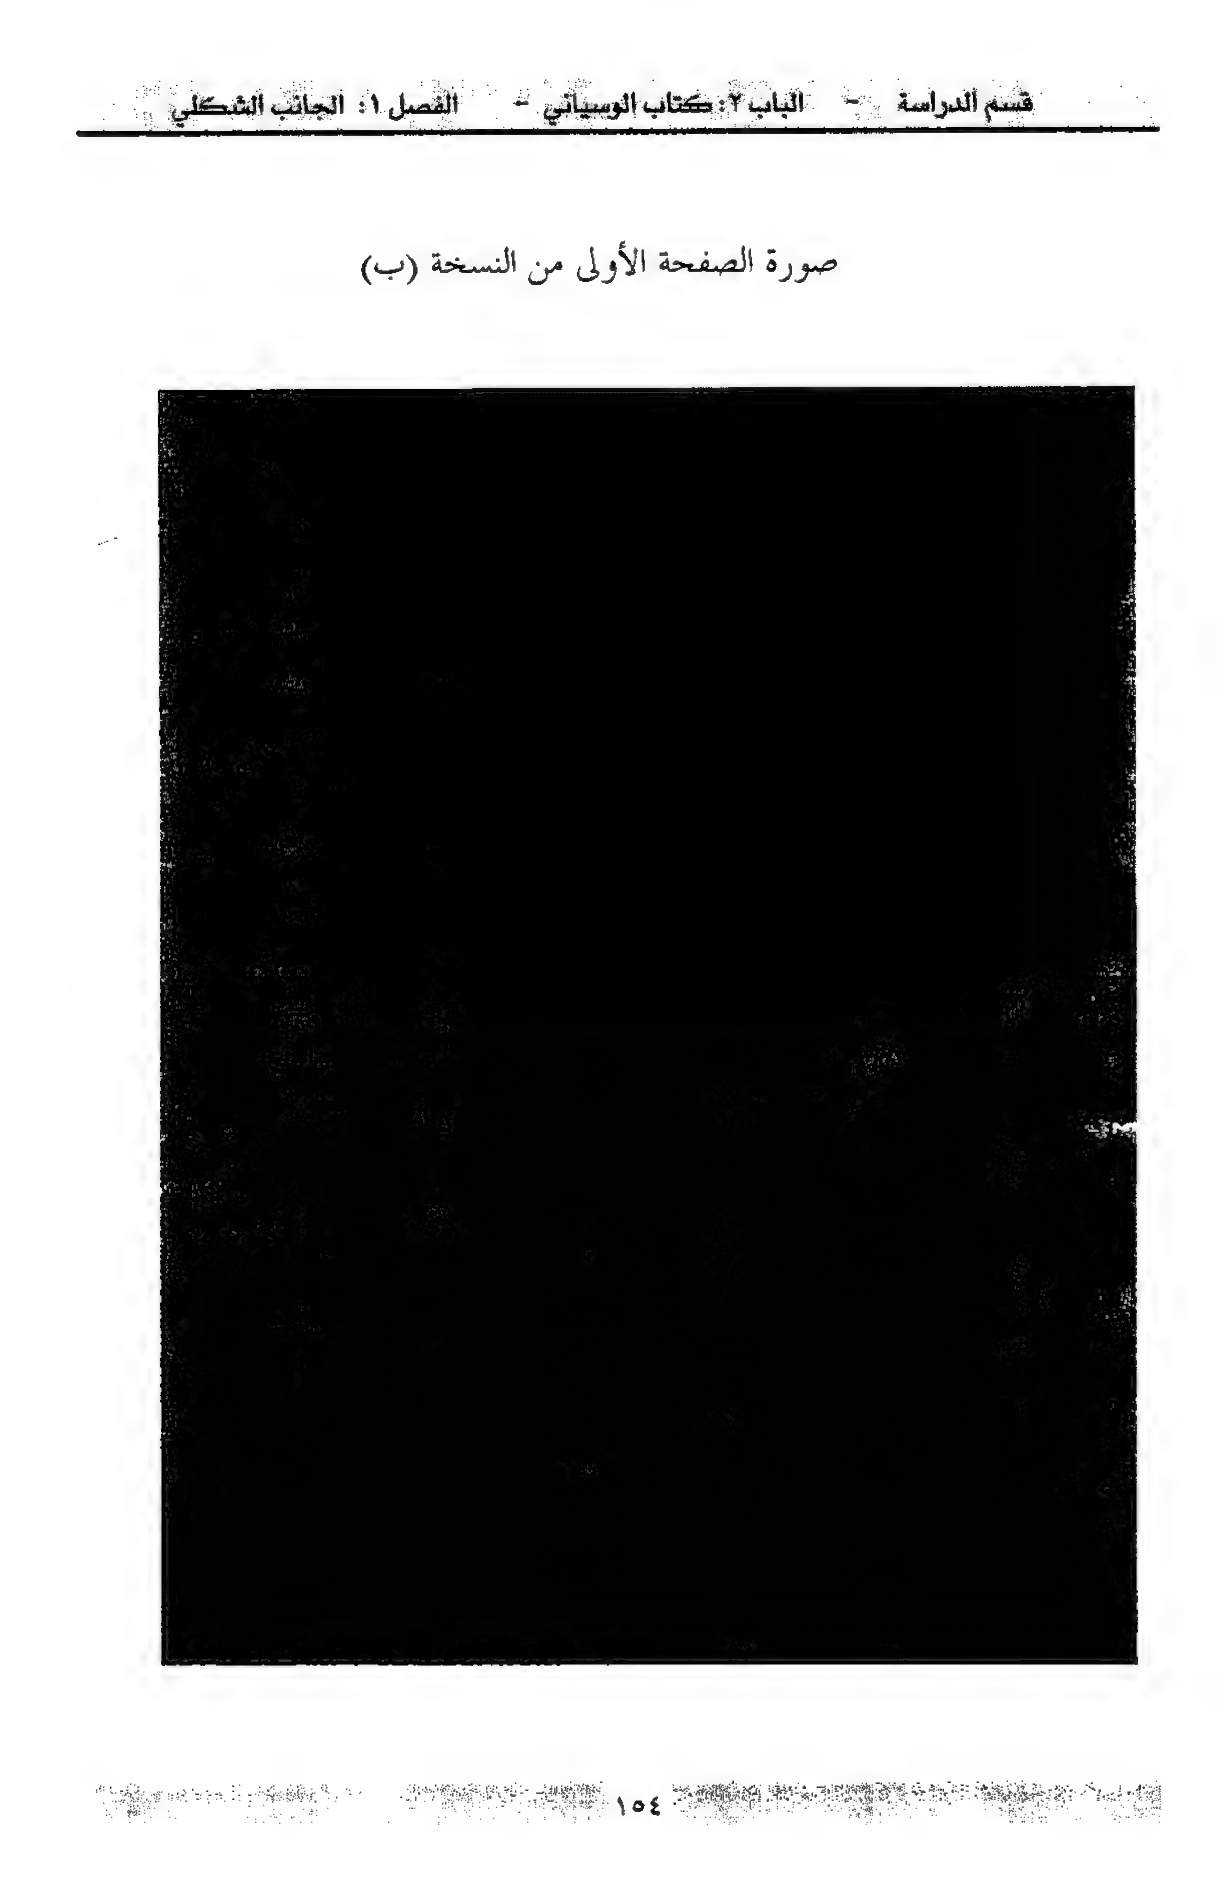 قسم الدراسة - الباب ٢: كتاب الوسياني - الفصل ١: الجانب الشكلي
صورة الصفحة الأولى من النسخة (ب)
١٥٤